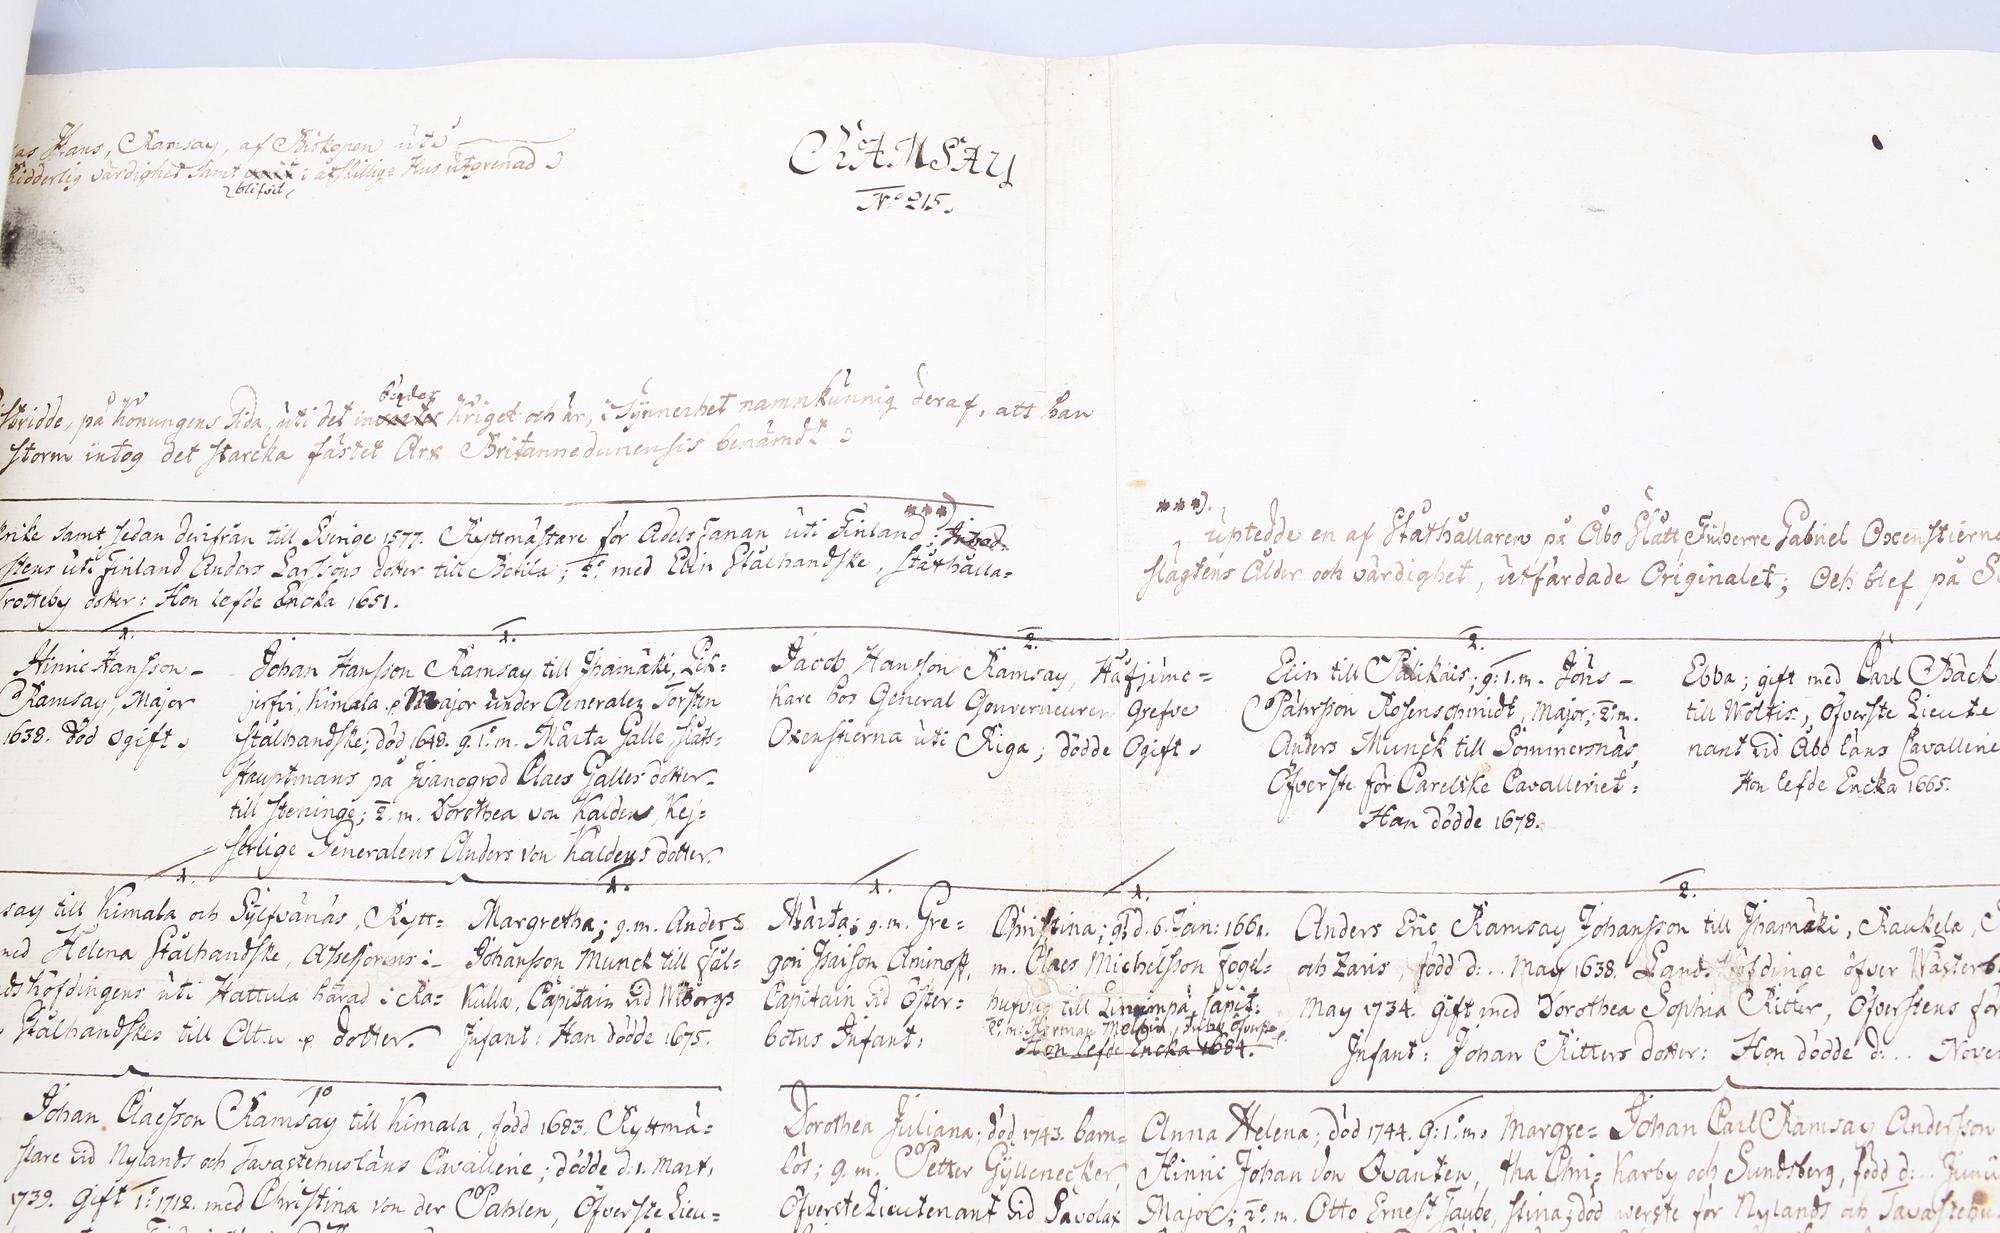 Hans, Ramsay, af Biskopen uti
Ridderlig värdighet samt i åtskillige Hus utgrenad
blifvit
RAMSAY
No 215.
stridde, på Konungens sida, uti det Kriget och är, i synnerhet namnkunnig deraf, att han
storm intog det starcka fästet Arx Britannodunensis benämdt
rike samt sedan derifrån till Sverige 1577. Ryttmästare för Adels Fanan uti Finland ***)
uti Finland Anders Larssons dotter till Botila; 2:o med Elin Stålhandske, Ståthålla=
dotter: Hon lefde Encka 1651.
***).
uptedde en af Ståthållaren på Åbo Slått, Friherre Gabriel Oxenstierna
slägtens Ålder och värdighet, utfärdade Originalet; och blef på
1.
Hinric Hansson
Ramsay, Major
1638. död ogift
1.
Johan Hansson Ramsay till Jhamäki,
Kimala p Major under Generalen Torsten
Stålhandske; död 1648. g. 1:o m. Märta Galle, Slåts=
Hauptmans på Jvanogrod Claes Galles dotter
till Steninge; 2. m. Dorothea von Kalden, Kej=
serlige Generalens Anders von Kaldens dotter.
2.
Jacob Hansson Ramsay, Håfjunc=
kare hos General Gouverneuren Grefve
Oxenstierna uti Riga; dödde Ogift
2.
Elin till Pälikäis; g: 1. m. Jöns
Påhrsson Rosenschmidt, Major; 2:o m.
Anders Munck till Sommersnäs,
Öfverste för Carelske Cavalleriet:
Han dödde 1678.
Ebba; gift med Carl Bäck
till Woltis, Öfverste Lieute
nant vid Åbo läns Cavallerie
Hon lefde Encka 1665.
1.
say till Kimala och Sylfvänäs, Rytt=
med Helena Stålhandske, Assessorens i
höfdingens uti Hattula härad i
Stålhandskes till Attu p dotter.
1.
Margretha; g. m. Anders
Johansson Munck till Fål=
kulla, Capitain vid Wiborgs
Infant: Han dödde 1675.
1.
Märta; g. m. Gre=
gori Isaisson Aminoff,
Capitain vid Öster=
botns Infant:
1.
Christina; g. d. 6. Jan: 1661.
m. Claes Michelsson Fogel=
hufvud till Capit:
2:o m: Herman
Hon lefde Encka 1684.
2.
Anders Eric Ramsay Johansson till Jhamäki, Raukela,
och Zaris, född d: .. May 1638. Landshöfdinge öfver
May 1734. gift med Dorothea Sophia Ritter, Öfverstens för
Infant: Johan Ritters dotter: Hon dödde d: .. Nove
1:o
Johan Claesson Ramsay till Kimala, född 1683. Ryttmä=
stare vid Nylands och Tavastehus läns Cavallerie; dödde d: 1. Mart,
1739. Gift 1:o 1712. med Christina von der Pahlen, Öfverste Lieu=
Dorothea Juliana; död 1743. barn=
lös; g. m. Petter Gyllenecker,
Öfverste Lieutenant vid Savolax
Anna Helena; död 1744. g: 1:o m.
Hinric Johan von Qvanten,
Major; 2:o m. Otto Ernest Taube,
Margre=
tha Chri=
stina; död
Johan Carl Ramsay Andersson
Karby och Sundsberg, född d: .. Junii
för Nylands och Tavastehu